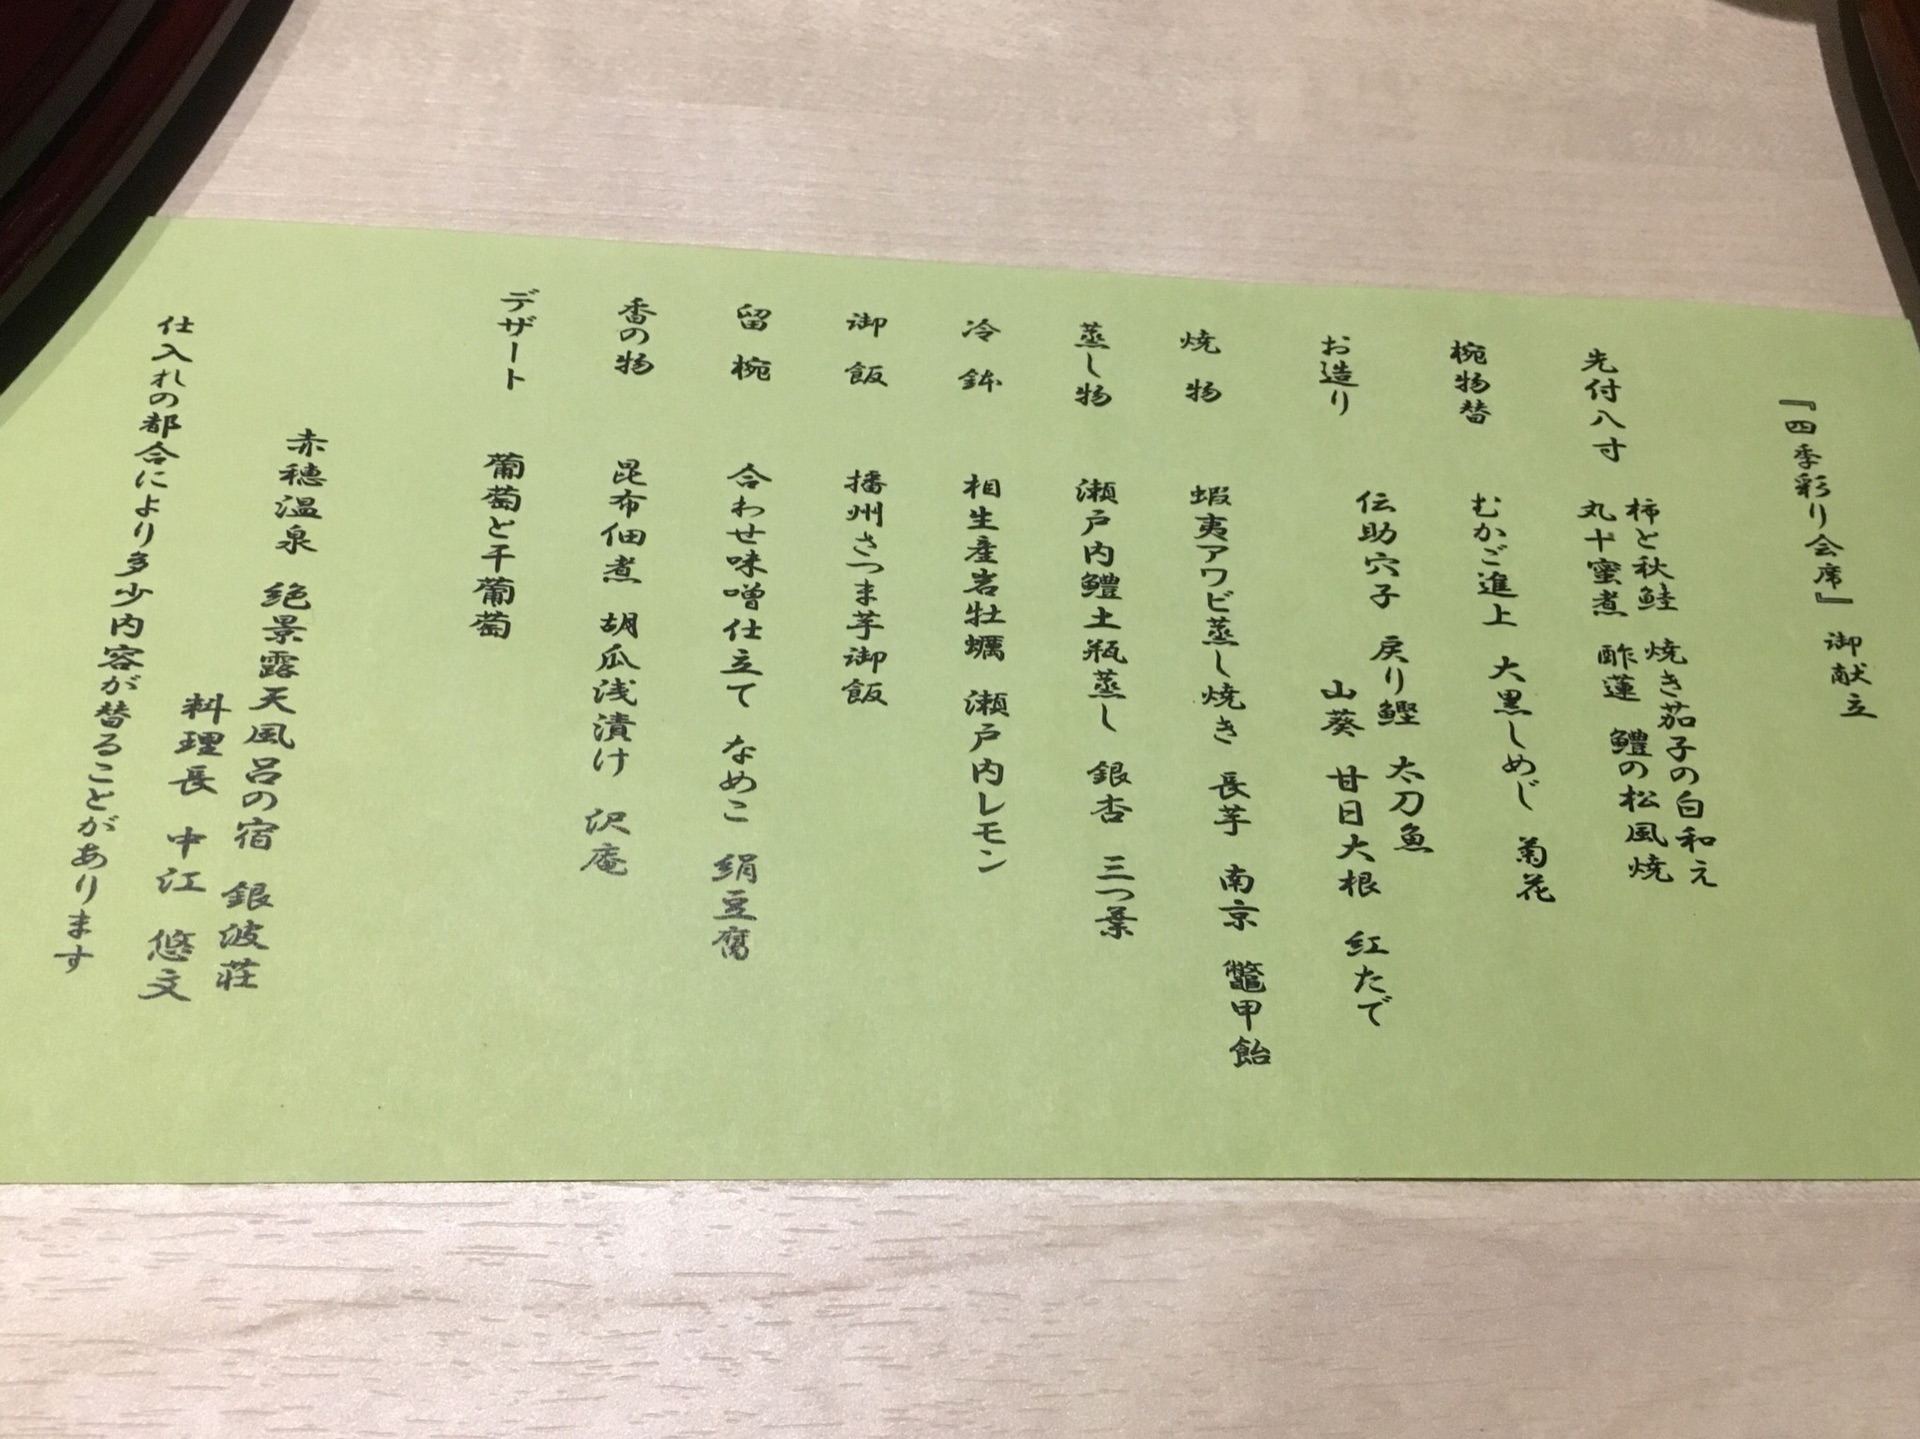 『四季彩り会席』 御献立
先付八寸 柿と秋鮭 焼き茄子の白和え
丸十蜜煮 酢蓮 鱧の松風焼
椀物替 むかご進上 大黒しめじ 菊花
お造り 伝助穴子 戻り鰹 太刀魚
山葵 甘日大根 紅たで
焼物 蝦夷アワビ蒸し焼き 長芋 南京 鼈甲飴
蒸し物 瀬戸内鱧土瓶蒸し 銀杏 三つ葉
冷鉢 相生産岩牡蠣 瀬戸内レモン
御飯 播州さつま芋御飯
留椀 合わせ味噌仕立て なめこ 絹豆腐
香の物 昆布佃煮 胡瓜浅漬け 沢庵
デザート 葡萄と干葡萄
赤穂温泉 絶景露天風呂の宿 銀波荘
料理長 中江 悠文
仕入れの都合により多少内容が替ることがあります